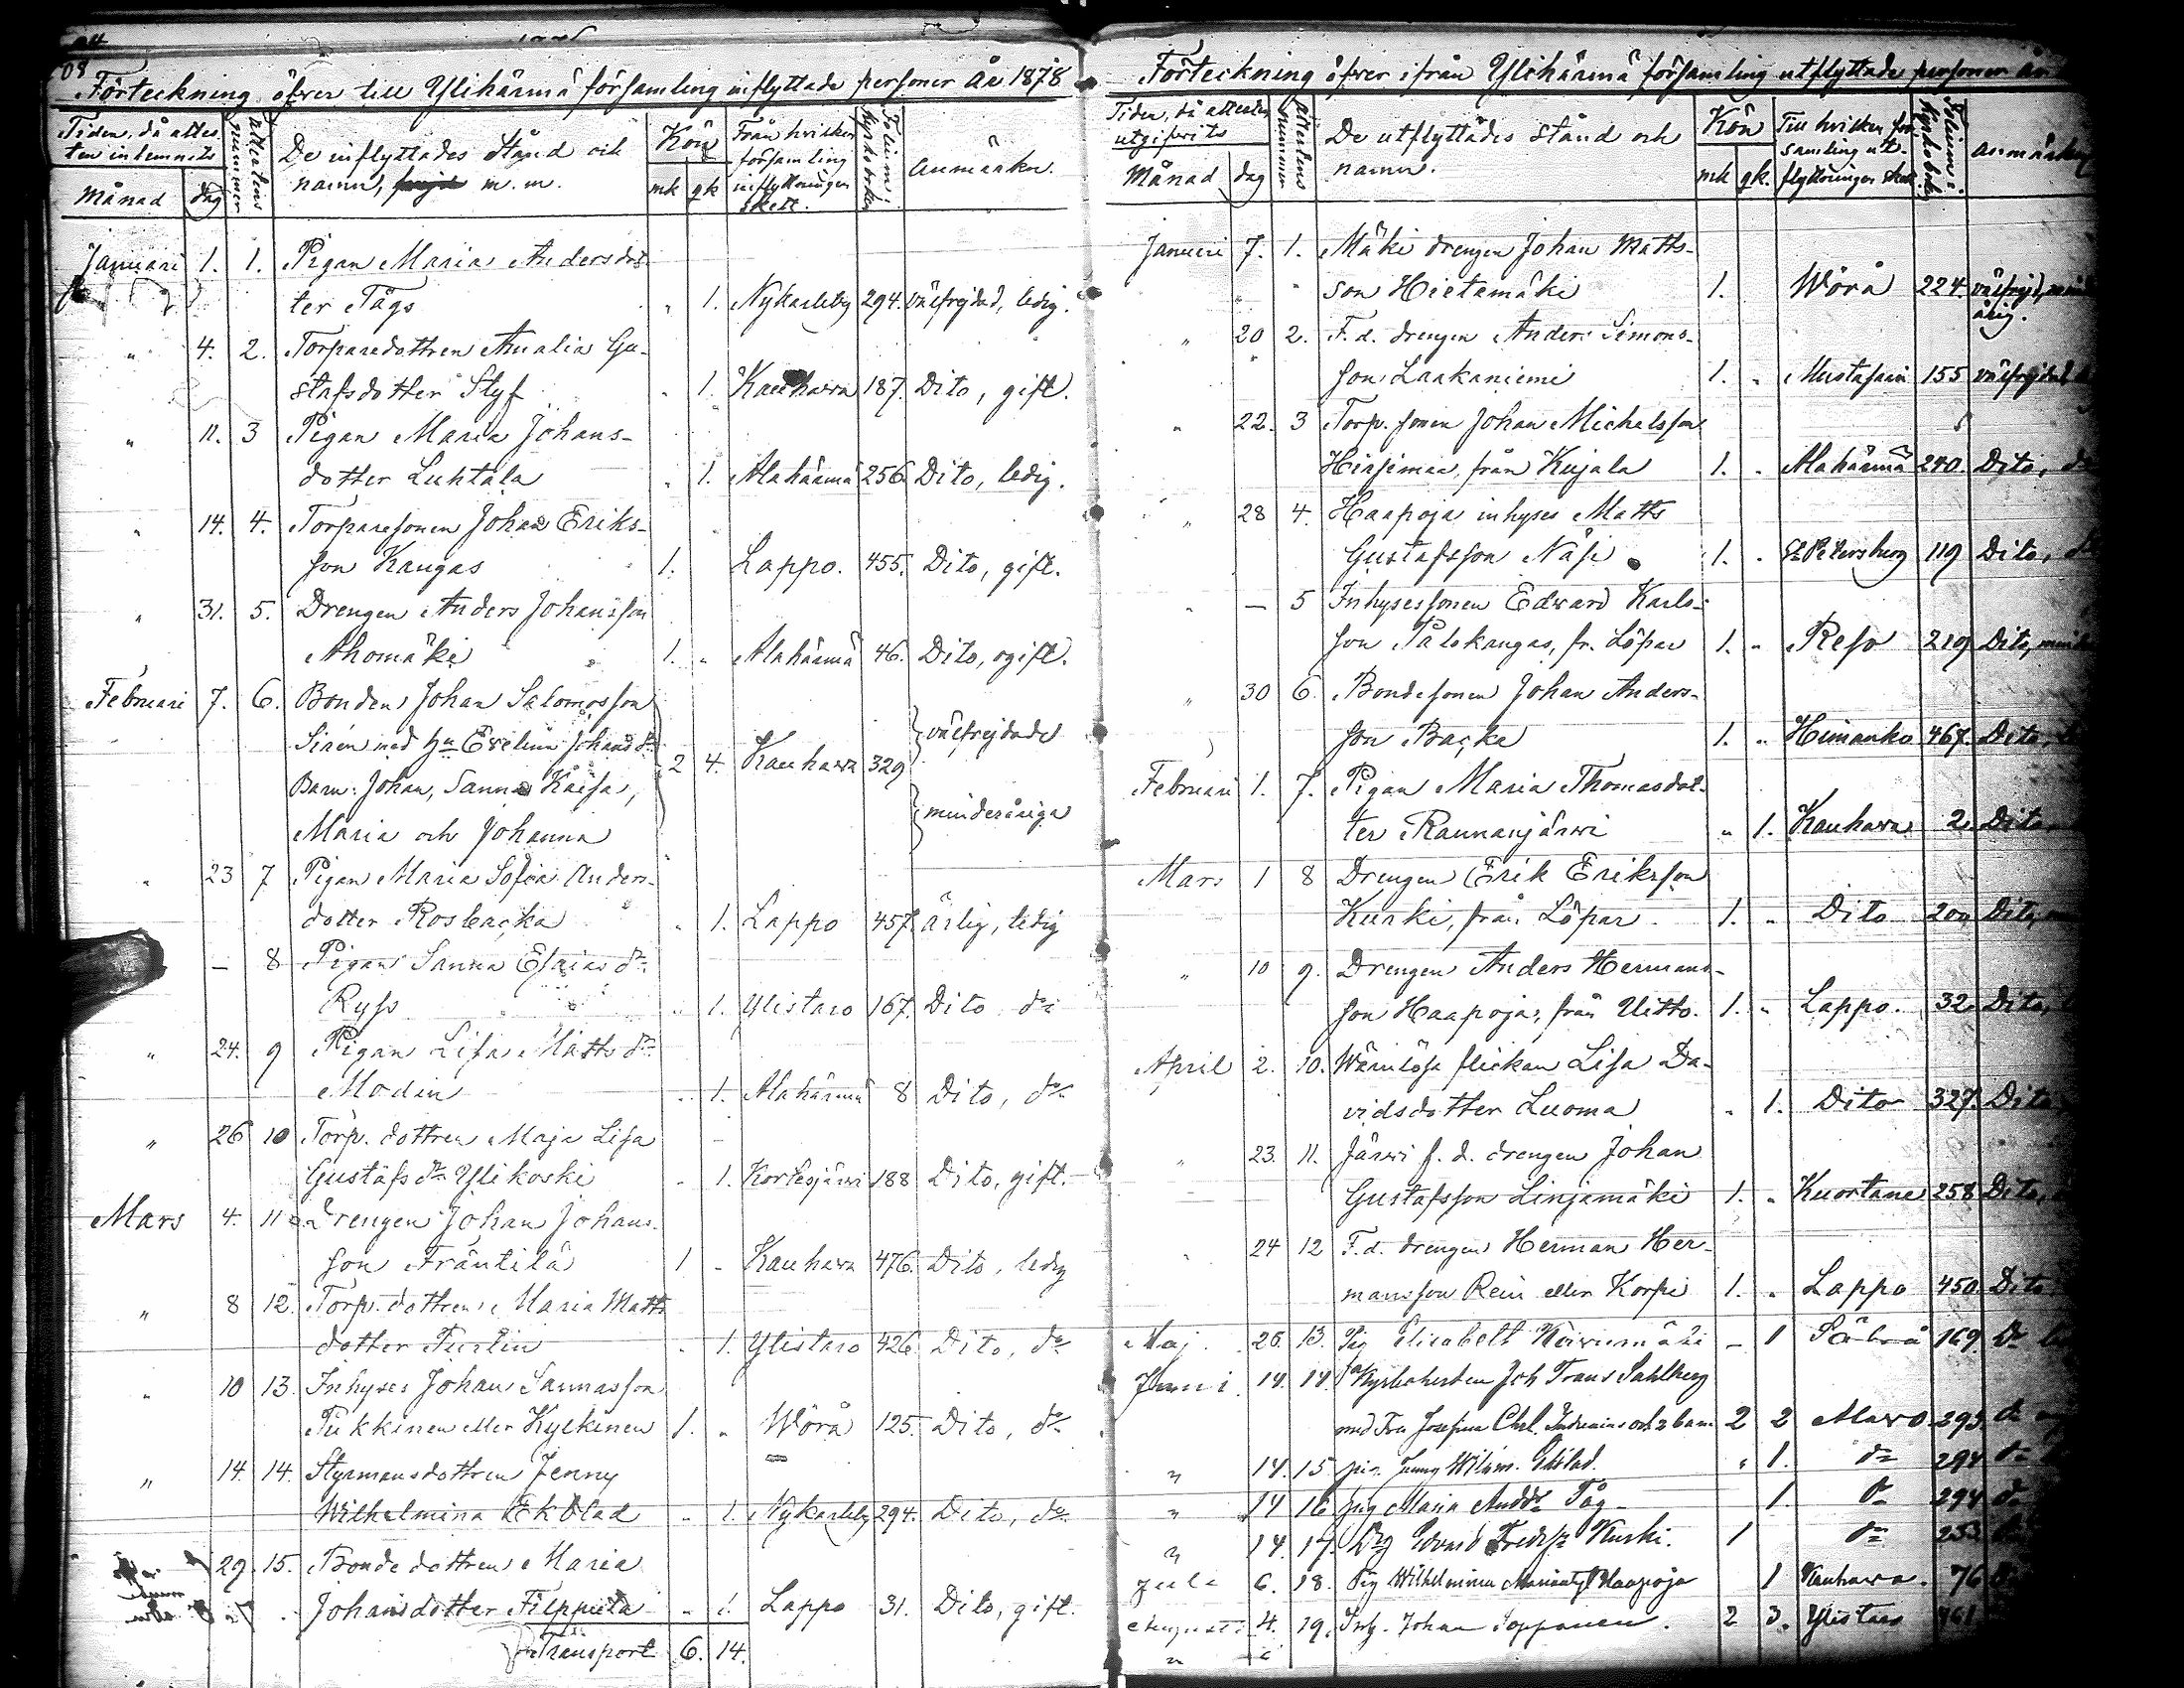 08
Förteckning öfver till Ylihärmä församling inflyttade personer År 1878
Tiden, då attesten inlemnats
Månad dag
Attestens nummer
De inflyttades Stånd och namn, m. m.
Kön
mk qk
Från hvilken församling inflyttningen skett.
Folium i kyrkoboken
Anmärkn.
Januari 1. 1. Pigan Maria Andersdot-
ter Tågs " 1. Nykarleby 294. välfrejdad, ledig.
" 4. 2. Torparedottren Amalia Gu-
stafsdotter Styf " 1. Kauhava 187. Dito, gift.
" 11. 3 Pigan Maria Johans-
dotter Luhtala " 1. Alahärmä 256. Dito, ledig.
" 14. 4. Torparesonen Johan Eriks-
son Kangas 1. Lappo. 455. Dito, gift.
" 31. 5. Drengen Anders Johansson
Ahomäki 1. " Alahärmä 46. Dito, ogift.
Februari 7. 6. Bonden Johan Salomosson
Sirén med hu Evelina Johansdr välfrejdade
Barn: Johan, Sanna Kaisa, 2 4. Kauhava 329
Maria och Johanna minderåriga
" 23 7 Pigan Maria Sofia Anders-
dotter Rosbacka " 1. Lappo 457. ärlig, ledig
— 8 Pigan Sanna Esaiasdr
Ryss " 1. Ylistaro 167. Dito do
" 24. 9 Pigan Lisa Mattsdr
Modin " 1. Alahärmä 8 Dito, do
" 26 10 Torp. dottren Maja Lisa
Gustafsdr Ylikoski " 1. Kortesjärvi 188 Dito, gift.
Mars 4. 11 Drengen Johan Johans-
son Fräntilä 1 " Kauhava 476. Dito, ledig
" 8 12. Torp. dottren Maria Matts
dotter Turlin " 1. Ylistaro 426. Dito, do
" 10 13. Inhyses Johan Sannasson
Pukkinen eller Kylkinen 1. " Wörå 125. Dito, do
" 14. 14. Styrmansdottren Jenny
Wilhelmina Ekblad " 1. Nykarleby 294. Dito, do
29. 15. Bondedottren Maria
Johansdotter Filppula " 1. Lappo 31. Dito, gift.
Transport 6. 14.
Förteckning öfver ifrån Ylihärmä församling utflyttade personer år
Tiden, då attesten utgifvits
Månad dag
Attestens nummer
De utflyttades stånd och namn.
Kön
mk qk.
Till hvilken församling utflyttningen skett.
Folium i kyrkoboken
Anmärkn
Januari 7. 1. Mäki drengen Johan Matts-
son Hietamäki 1. Wörå 224. välfrejd, minder
årig.
" 20 2. F. d. drengen Anders Simons-
son Laakaniemi 1. " Mustasaari 155 välfrejdad
" 22. 3 Torp. sonen Johan Michelsson
Hirsimaa, från Kujala 1. " Alahärmä 240. Dito,
" 28 4. Haapoja inhyses Matts
Gustafsson Näse 1. " St Petersburg 119 Dito,
" — 5 Inhysessonen Edward Karls-
son Pålskangas, fr. Löpar 1. " Reso 219 Dito,
" 30 6. Bondesonen Johan Anders-
son Backa 1. " Himanko 467. Dito,
Februari 1. 7. Pigan Maria Thomasdot-
ter Raunanjärwi " 1. Kauhava 2. Dito
Mars 1 8 Drengen Erik Eriksson
Kurki, från Löpar. 1. " Dito 20 Dito,
" 10 9. Drengen Anders Hermans-
son Haapoja, från Uitto. 1. " Lappo. 32 Dito,
April 2. 10. Wärnlösa flickan Lisa Da-
vidsdotter Luoma " 1. Dito 327. Dito
" 23. 11. Järwi f. d. drengen Johan
Gustafsson Linjamäki 1. " Kuortane 258 Dito,
" 24 12 F. d. drengen Herman Her-
mansson Rein eller Korpi 1. " Lappo 450. Dito
Maj 26. 13. Pig Elisabeth — 1 169. Do
Juni 14. 14. Kyrkoherden Joh Frans Sahlberg
med Fru Josefina Chel. och 2 barn 2 2 Alavo 293. do
" 14. 15. pig. Jenny Wilhm. Ekblad. " 1. do 294 do
" 14 16 Pig Maria Andsdr Tåg 1. do 294 do
" 14. 17. Drg Edvard Fredrsn Kurki. 1 do 253
Juli 6. 18. Pig Wilhelmina Haapoja 1 Kauhava. 76
Augusti 4. 19. Inh. Johan Soppanen. 2 3. Ylistaro
"